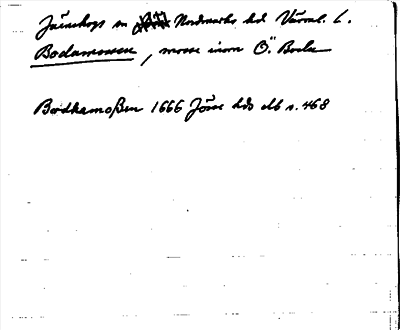 Järnskogs sn Nordmarks hd Värml. l.
Bodamossen, mosse inom Ö. Boda
Bodhamoßen 1666 Jösse hds db s. 468